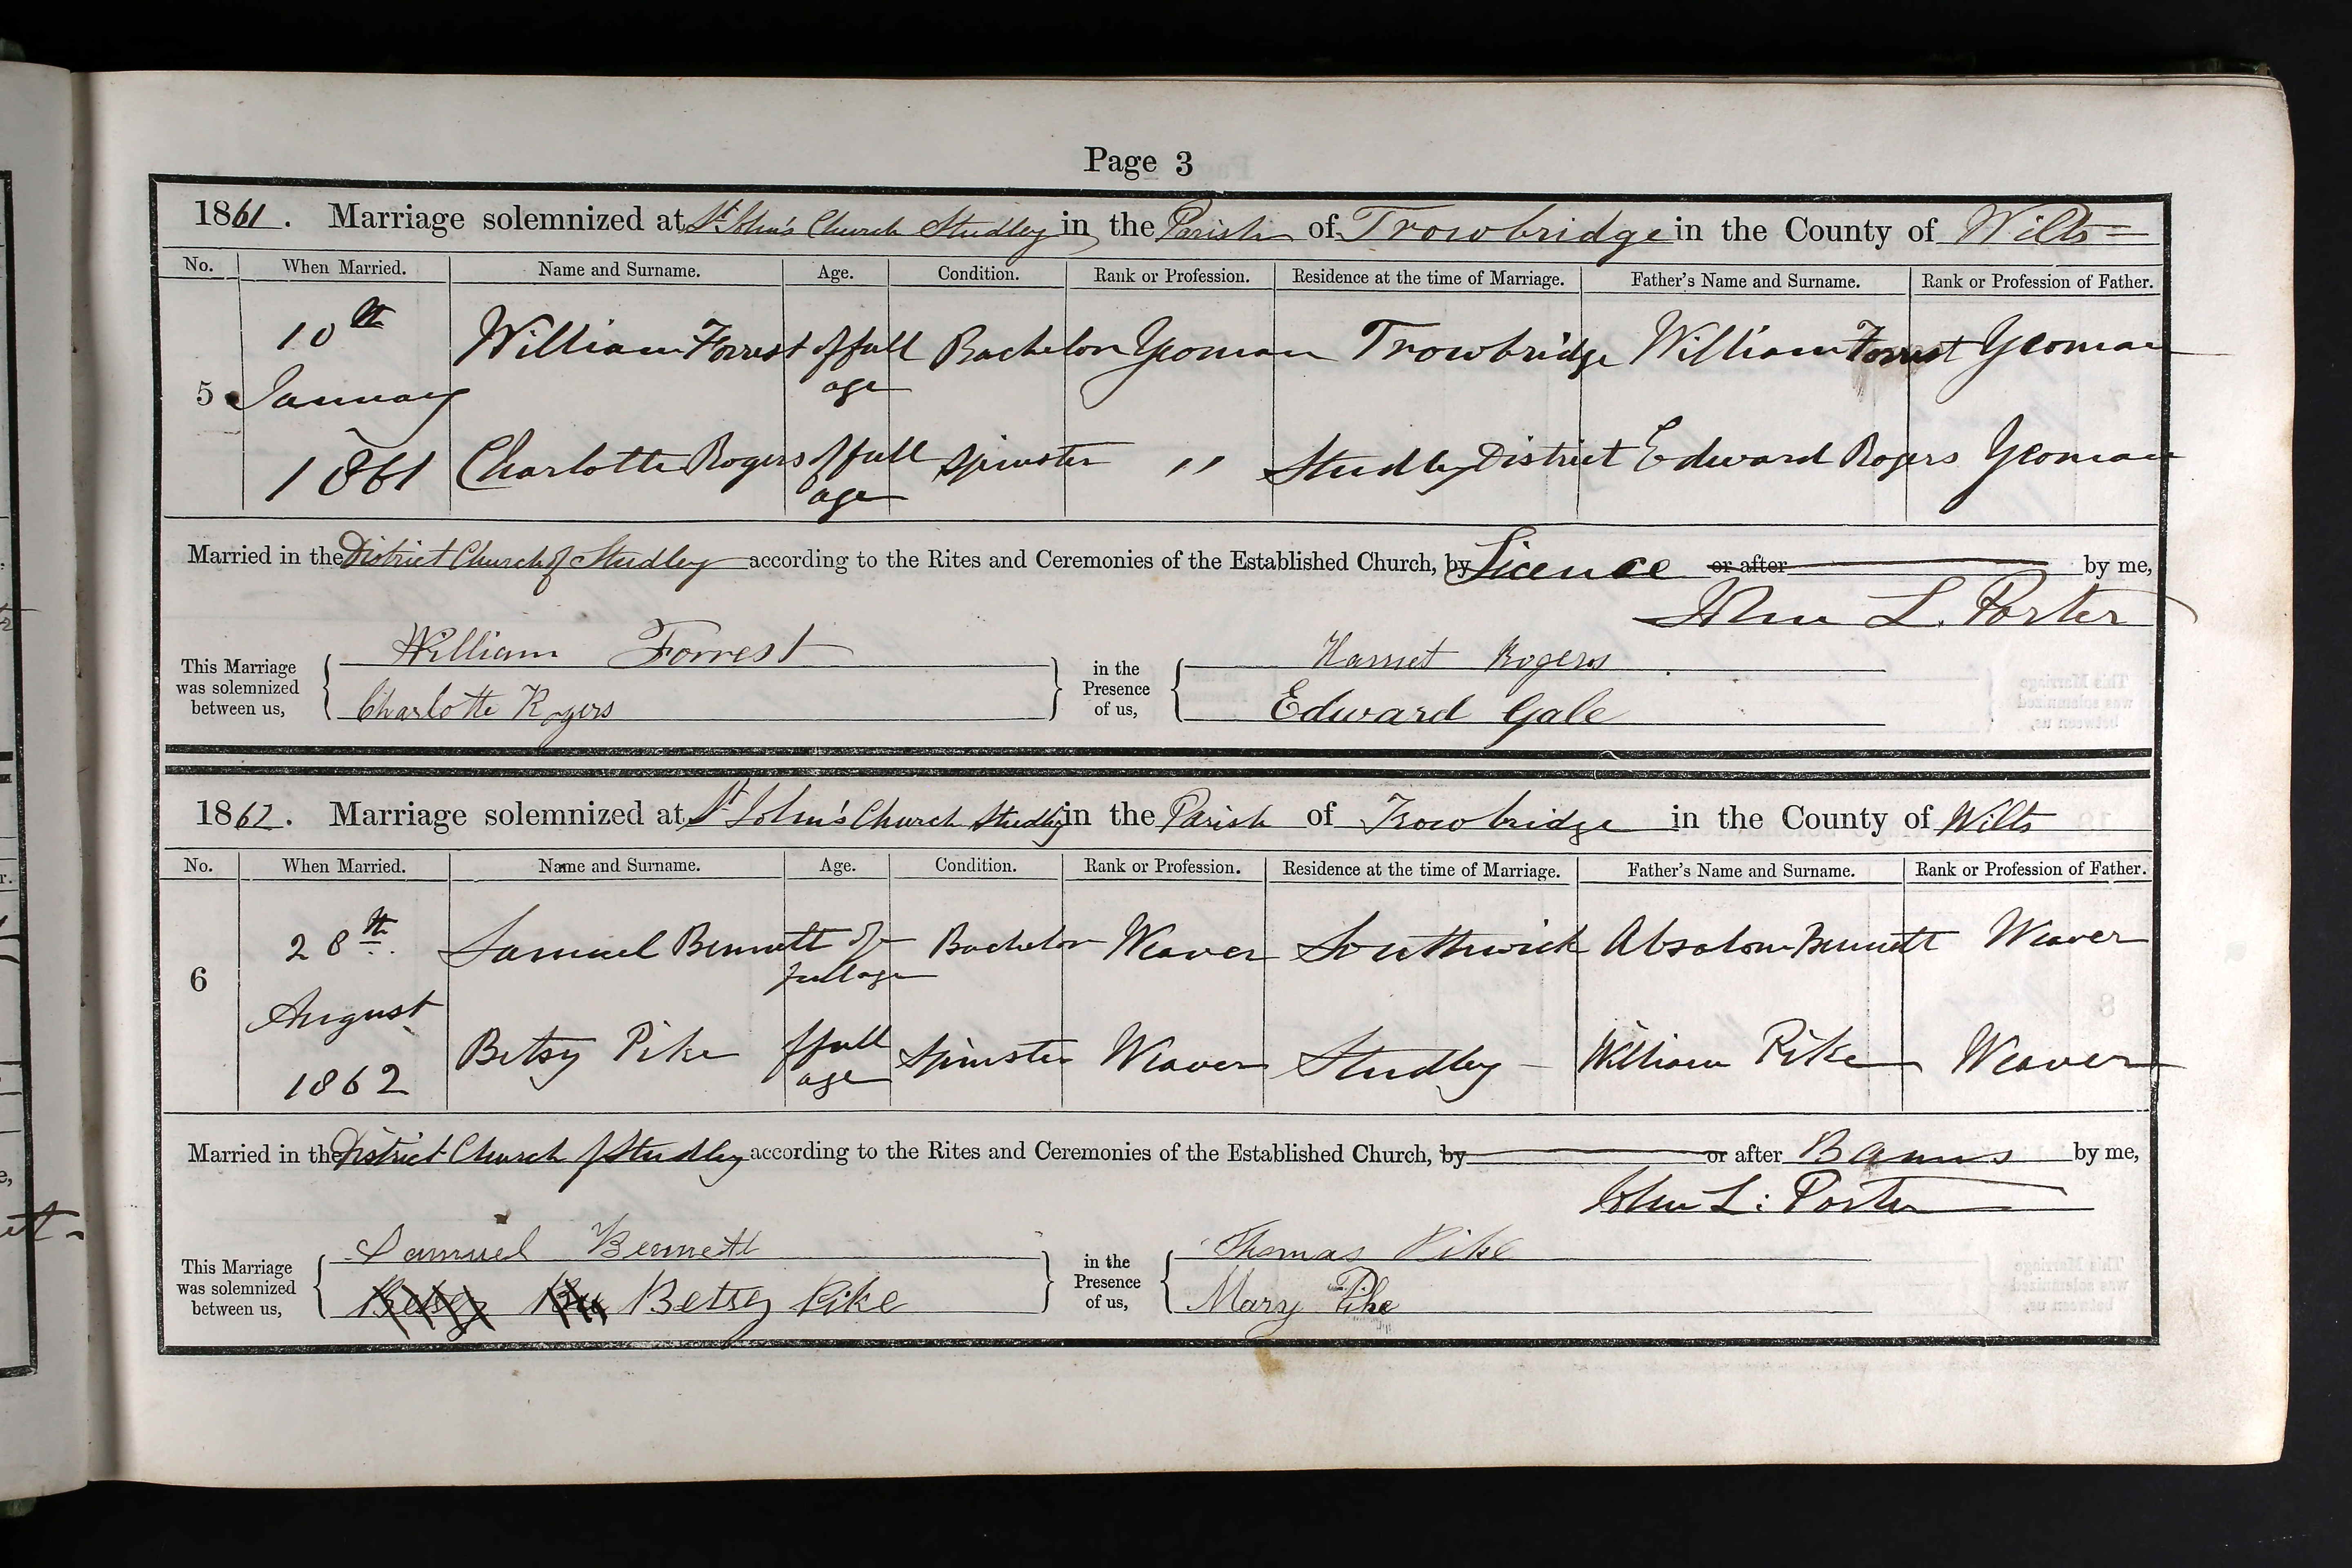 Page 3
1861. Marriage solemnized at St John's Church Studley in the Parish of Trowbridge in the County of Wilts
No. When Married. Name and Surname. Age. Condition. Rank or Profession. Residence at the time of Marriage. Father's Name and Surname. Rank or Profession of Father.
10th William Forrest of full age Bachelor Yeoman Trowbridge William Forrest Yeoman
5 January
1861 Charlotte Rogers of full age Spinster " Studley District Edward Rogers Yeoman
Married in the District Church of Studley according to the Rites and Ceremonies of the Established Church, by Licence or after by me,
John L. Porter
This Marriage was solemnized between us, William Forrest in the Presence of us, Harriet Rogers
Charlotte Rogers Edward Gale
1862. Marriage solemnized at St John's Church Studley in the Parish of Trowbridge in the County of Wilts
No. When Married. Name and Surname. Age. Condition. Rank or Profession. Residence at the time of Marriage. Father's Name and Surname. Rank or Profession of Father.
28th Samuel Bennett of full age Bachelor Weaver Southwick Absalom Bennett Weaver
6 August
1862 Betsy Pike of full age Spinster Weaver Studley William Pike Weaver
Married in the District Church of Studley according to the Rites and Ceremonies of the Established Church, by or after Banns by me,
John L: Porter
This Marriage was solemnized between us, Samuel Bennett in the Presence of us, Thomas Pike
Betsy Pike Mary Pike